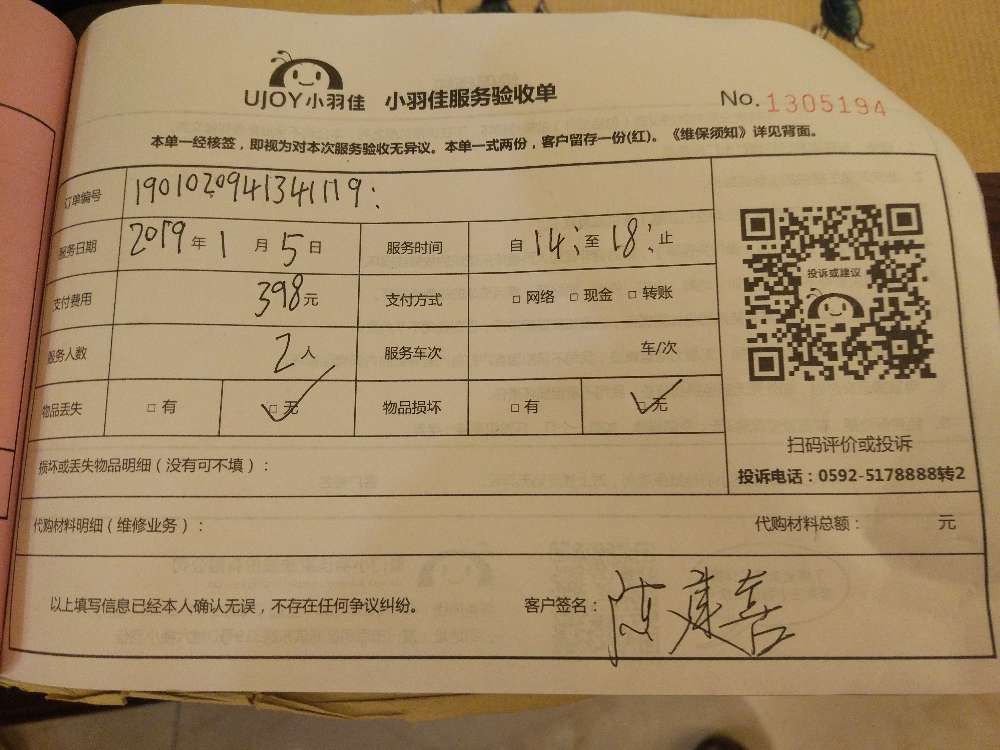 UJOY小羽佳 小羽佳服务验收单 No.1305194
本单一经核签，即视为对本次服务验收无异议。本单一式两份，客户留存一份(红)。《维保须知》详见背面。
订单编号 190102094134119:
服务日期 2019年1月5日 服务时间 自14:至18:止
支付费用 398元 支付方式 □网络 □现金 □转账
服务人数 2人 服务车次 车/次
物品丢失 □有 □无 物品损坏 □有 □无
投诉或建议
扫码评价或投诉
投诉电话：0592-5178888转2
损坏或丢失物品明细（没有可不填）：
代购材料明细（维修业务）： 代购材料总额： 元
以上填写信息已经本人确认无误，不存在任何争议纠纷。 客户签名：陈康喜